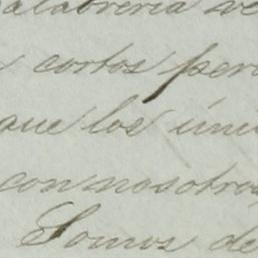 alabrería ve
cortos pero
que los úni
con nosotros
Somos de